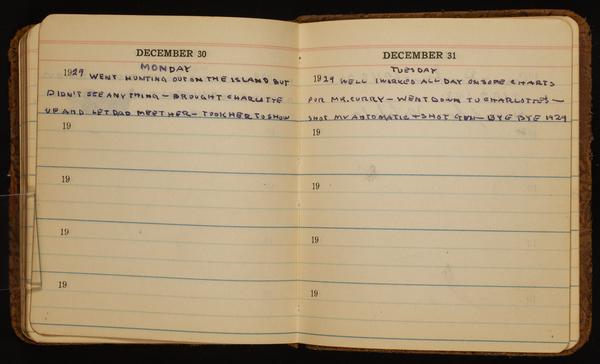 DECEMBER 30
MONDAY
1929 WENT HUNTING OUT ON THE ISLAND BUT
DIDN'T SEE ANYTHING - BROUGHT CHARLOTTE
UP AND LET DAD MEET HER - TOOK HER TO SHOW
19
19
19
19
DECEMBER 31
TUESDAY
1929 WELL I WORKED ALL DAY ON SOME CHARTS
FOR MR. CURRY - WENT DOWN TO CHARLOTTE'S -
SHOT MY AUTOMATIC + SHOT GUN - BYE BYE 1929
19
19
19
19